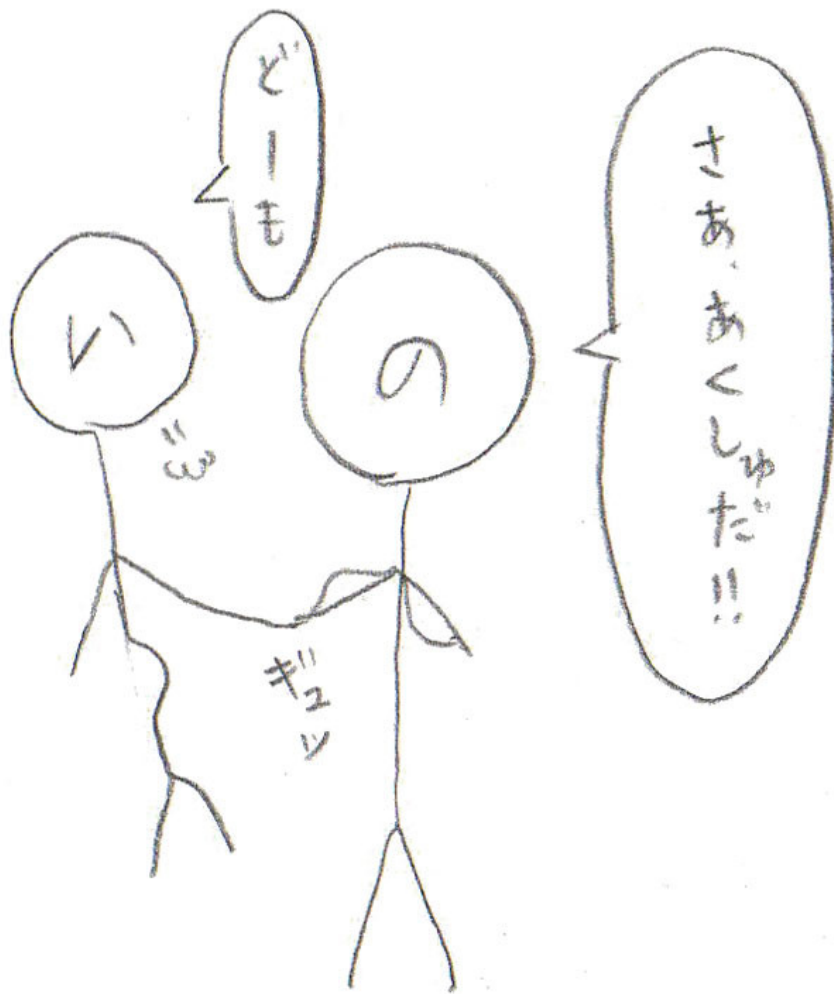 さあ、あくしゅだ!!
どーも
の
い
ギュッ